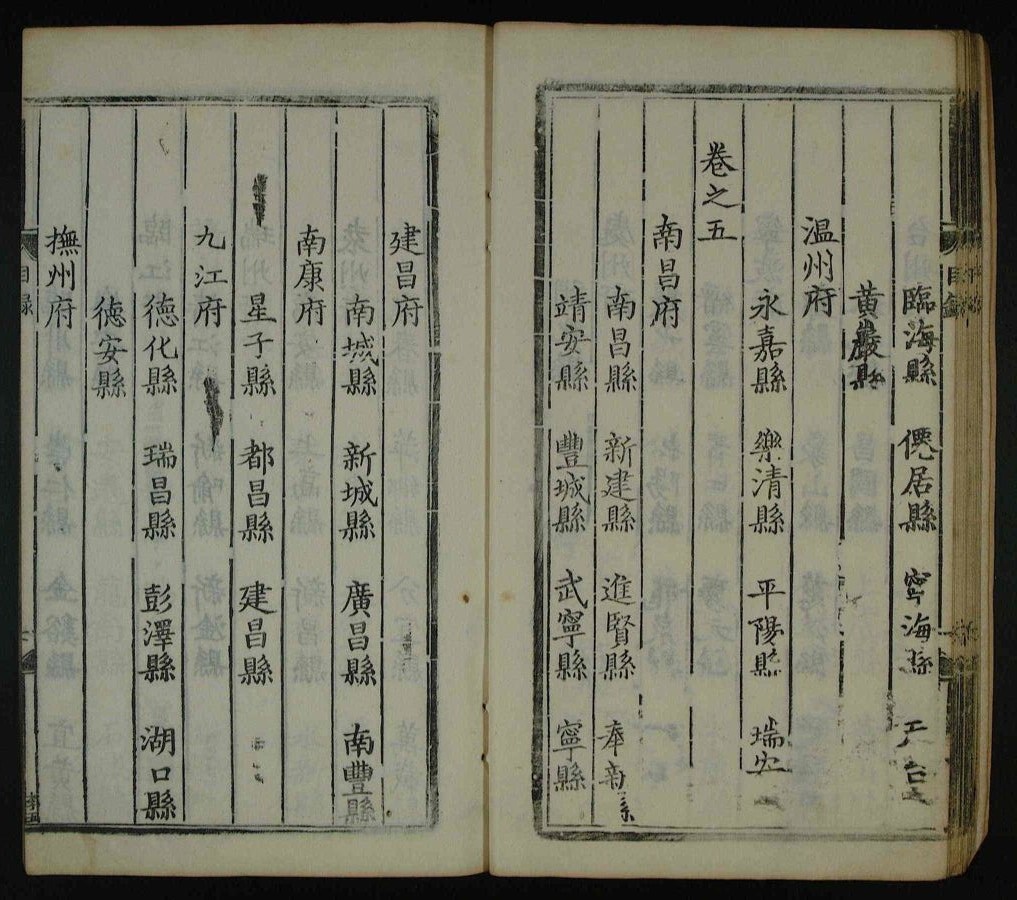 臨海縣 僊居縣 寧海縣
黄巖縣
温州府
永嘉縣 樂清縣 平陽縣 瑞安
卷之五
南昌府
南昌縣 新建縣 進賢縣 奉新縣
靖安縣 豐城縣 武寧縣 寧縣
建昌府
南城縣 新城縣 廣昌縣 南豐縣
南康府
星子縣 都昌縣 建昌縣
九江府
德化縣 瑞昌縣 彭澤縣 湖口縣
德安縣
撫州府
目録